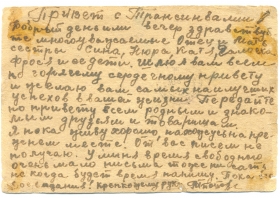 Привет с Трансильвании
Добрый день или вечер здравствуй
те многоуважаемые Отец и мать
сестры Сина, Нюра Катя, Валюска
Фрося и ее дети, шлю я вам всем
по горячему сердечному привету
и желаю вам самых наилутших
успехов в вашей жизни. Передайте
по привету всем родным и знако
мым друзьям и товарищам
Я пока живу хорошо нахожусь на пре
жнем месте. От вас писем не
получаю. У меня время свободного
очень мало письма
но когда будет время напишу. Пока до
свидания! крепко жму руки